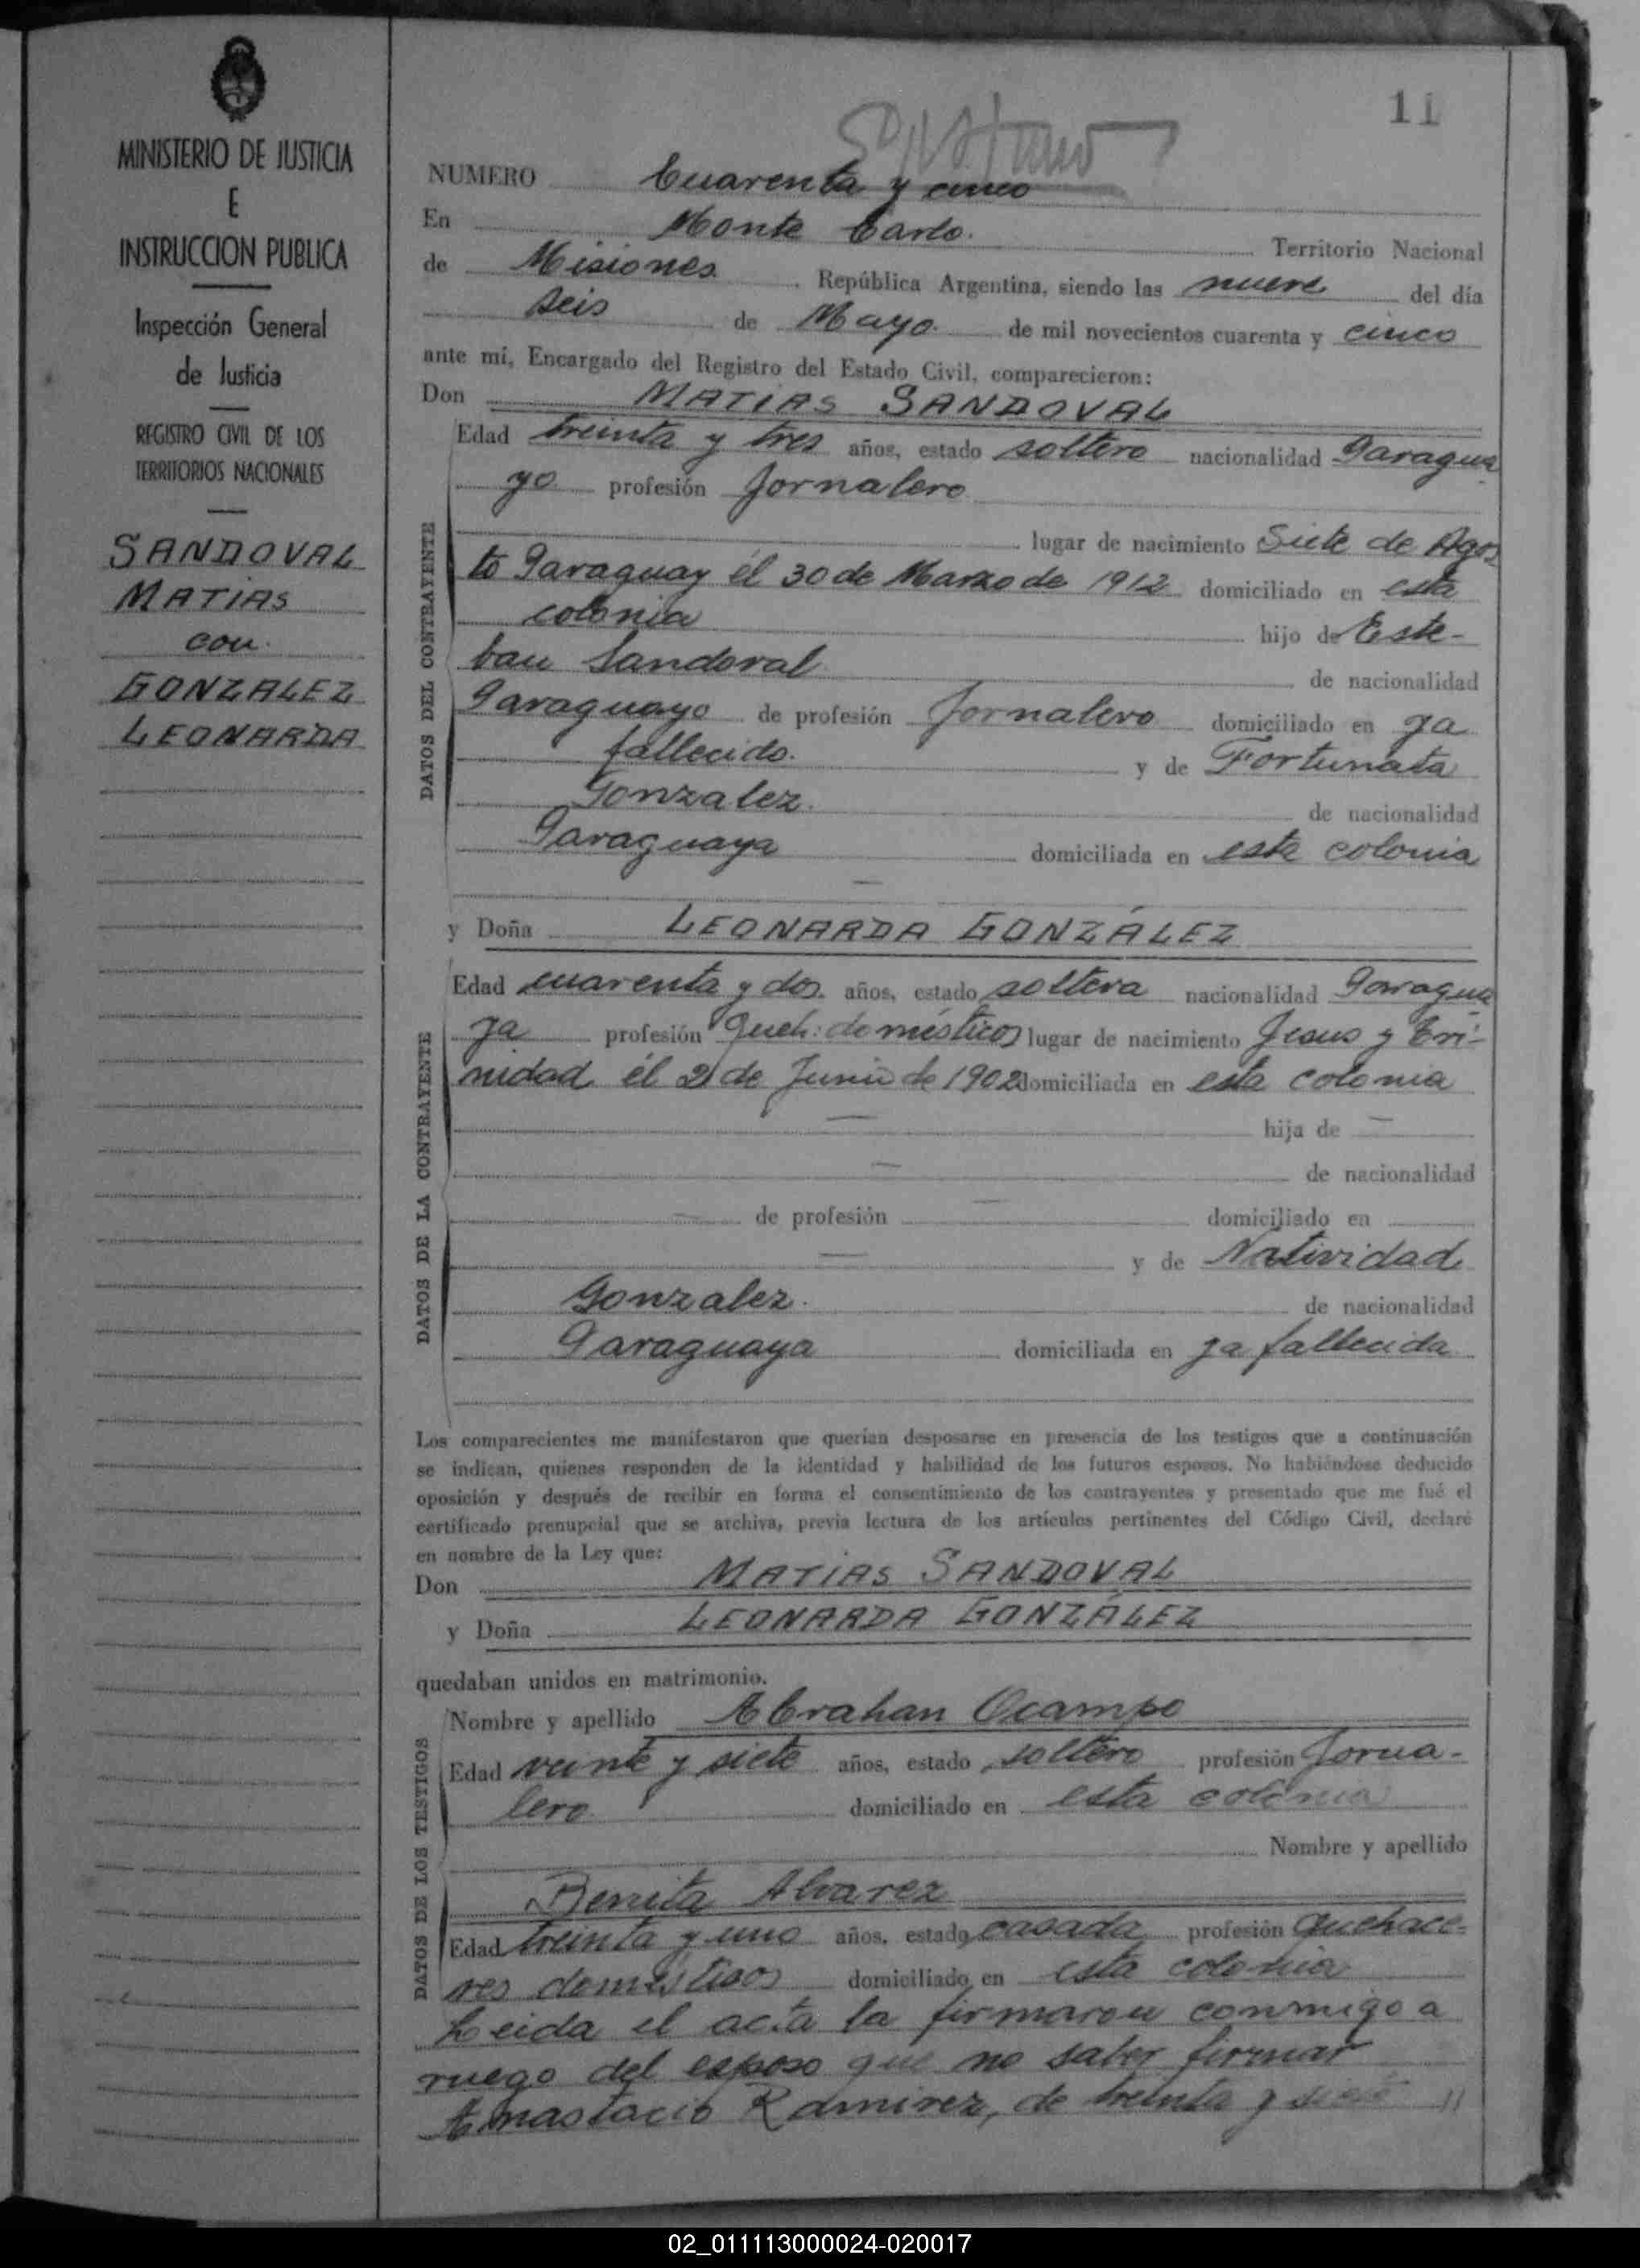 MINISTERIO DE JUSTICIA
E
INSTRUCCION PUBLICA
Inspección General
de Justicia
REGISTRO CIVIL DE LOS
TERRITORIOS NACIONALES
SANDOVAL
MATIAS
con
GONZALEZ
LEONARDA
11
NUMERO Cuarenta y cinco
En Monte Carlo. Territorio Nacional
de Misiones. República Argentina, siendo las nueve del día
seis de Mayo. de mil novecientos cuarenta y cinco
ante mí, Encargado del Registro del Estado Civil, comparecieron:
Don MATIAS SANDOVAL
DATOS DEL CONTRAYENTE
Edad treinta y tres años, estado soltero nacionalidad Paragua
yo profesión Jornalero
lugar de nacimiento Siete de Agos
to Paraguay él 30 de Marzo de 1912 domiciliado en esta
colonia hijo de Este-
ban Sandoval de nacionalidad
Paraguayo de profesión Jornalero domiciliado en ya
fallecido. y de Fortunata
Gonzalez. de nacionalidad
Paraguaya domiciliada en esta colonia
y Doña LEONARDA GONZÁLEZ
DATOS DE LA CONTRAYENTE
Edad cuarenta y dos. años, estado soltera nacionalidad Paragua
ya profesión Queh: domésticos lugar de nacimiento Jesus y Tri-
nidad él 2 de Junio de 1902 domiciliada en esta colonia
— hija de —
— de nacionalidad
— de profesión — domiciliado en
— y de Natividad
Gonzalez. de nacionalidad
Paraguaya domiciliada en ya fallecida
Los comparecientes me manifestaron que querían desposarse en presencia de los testigos que a continuación
se indican, quienes responden de la identidad y habilidad de los futuros esposos. No habiéndose deducido
oposición y después de recibir en forma el consentimiento de los contrayentes y presentado que me fué el
certificado prenupcial que se archiva, previa lectura de los artículos pertinentes del Código Civil, declaré
en nombre de la Ley que:
Don MATIAS SANDOVAL
y Doña LEONARDA GONZÁLEZ
quedaban unidos en matrimonio.
DATOS DE LOS TESTIGOS
Nombre y apellido Abrahan Ocampo
Edad veinte y siete años, estado soltero profesión Jorna-
lero domiciliado en esta colonia
Nombre y apellido
Benita Alvarez
Edad treinta y uno años, estado casada profesión Quehace-
res domésticos domiciliado en esta colonia
Leida el acta la firmaron conmigo a
ruego del esposo que no saber firmar
Anastacio Ramirez, de treinta y siete //
02_011113000024-020017